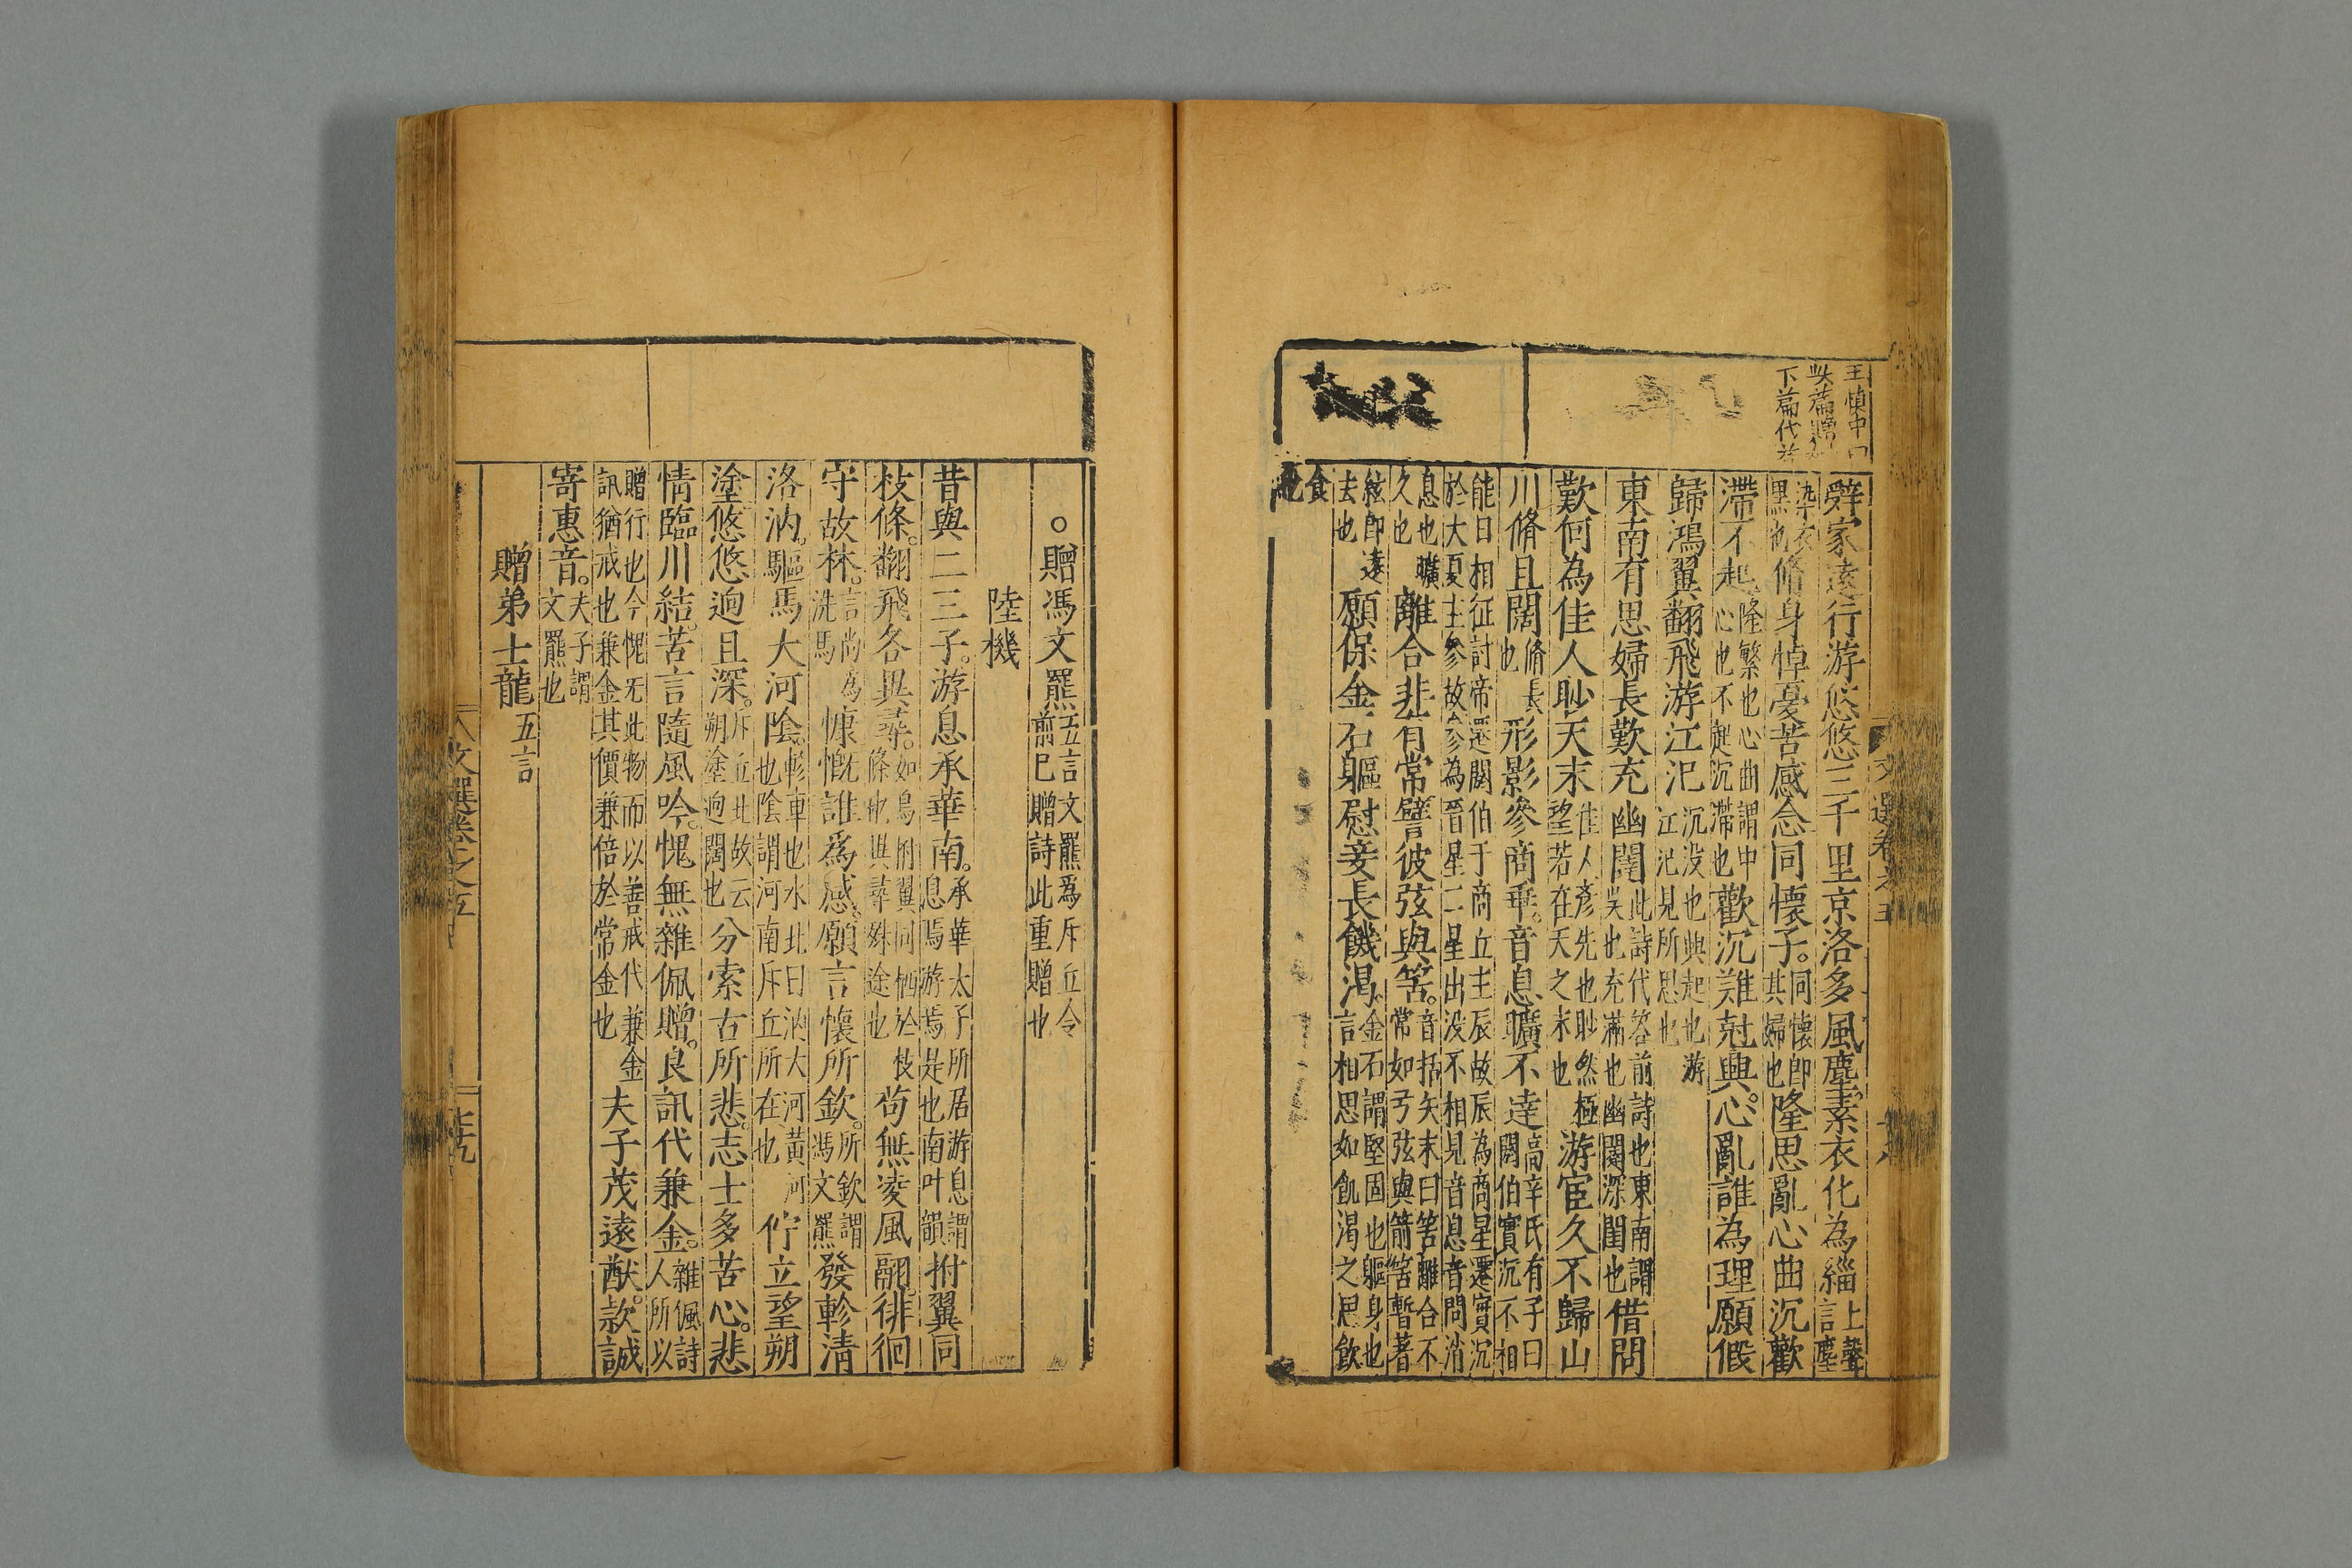 王慎中曰
此篇贈
下篇代答
辭家遠行游悠悠三千里京洛多風塵素衣化為緇上聲言塵
染衣黑也脩身悼憂苦感念同懷子。同懷即其婦也隆思亂心曲沉歡
滯不起隆繁也心曲謂中心也不起沉滯也歡沉難尅興。心亂誰為理願假
歸鴻翼翻飛游江汜沉没也興起也游江汜見所思也
東南有思婦長歎充幽闥此詩代答前詩也東南謂吳也充滿也幽闥深閨也借問
歎何為佳人眇天末佳人彥先也眇然極望若在天之末也游宦久不歸山
川脩且闊脩長也形影參商乖。音息曠不達高辛氏有子曰閼伯實沉不相
能日相征討帝遷閼伯于商丘主辰故辰為商星遷實沉於大夏主參故參為晉星二星出没不相見音息音問消
息也曠久也離合非有常譬彼弦與筈。音括矢末曰筈離合不常如弓弦與箭筈暫著
絃即遠去也願保金石軀慰妾長饑渴。金石謂堅固也軀身也言相思如飢渴之思飲
食也
文選卷之五
。贈馮文羆五言文羆為斥丘令前已贈詩此重贈也
陸機
昔與二三子。游息承華南。承華太子所居游息謂息焉游焉是也南叶韻拊翼同
枝條。翻飛各異尋。如鳥拊翼同栖於枝條也異尋殊途也苟無凌風翮。徘徊
守故林。言尚為洗馬慷慨誰為感。願言懷所欽。所欽謂馮文羆發軫清
洛汭。驅馬大河陰。軫車也水北曰汭大河黃河也陰謂河南斥丘所在也佇立望朔
塗悠悠迥且深。斥丘北故云朔塗迥闊也分索古所悲。志士多苦心。悲
情臨川結。苦言隨風吟。愧無雜佩贈。良訊代兼金。雜佩詩人所以
贈行也今愧无此物而以善戒代兼金訊猶戒也兼金其價兼倍於常金也夫子茂遠猷。款誠
寄惠音。夫子謂文羆也
贈弟士龍五言
文選卷之五